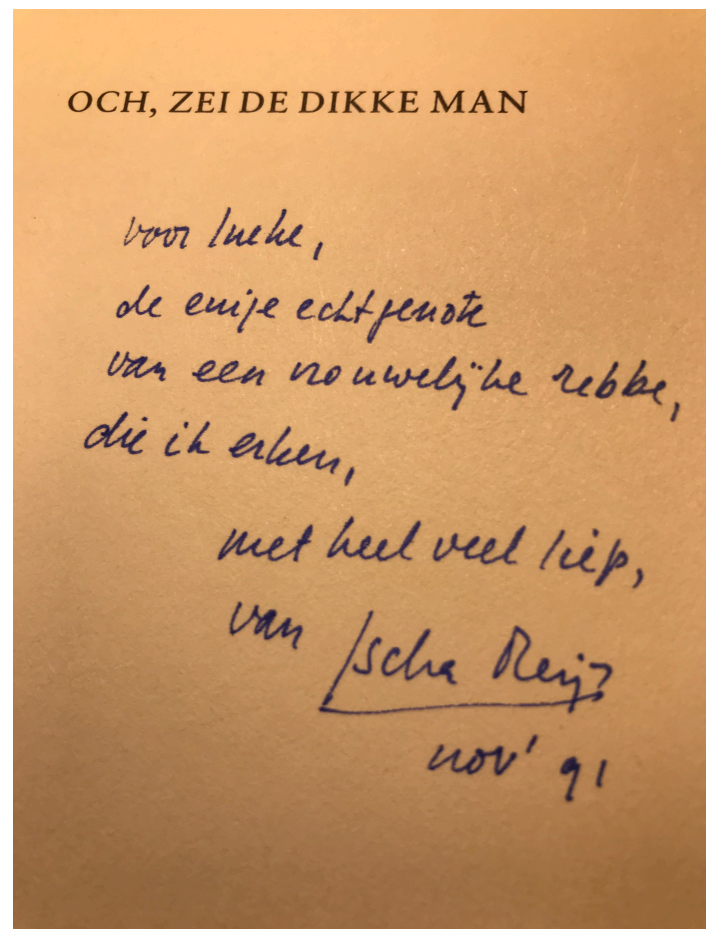 OCH, ZEI DE DIKKE MAN
voor Ineke,
de enige echtgenote
van een vrouwelijke rebbe,
die ik erken,
met heel veel liefs,
van Ischa Meijer
nov' 91